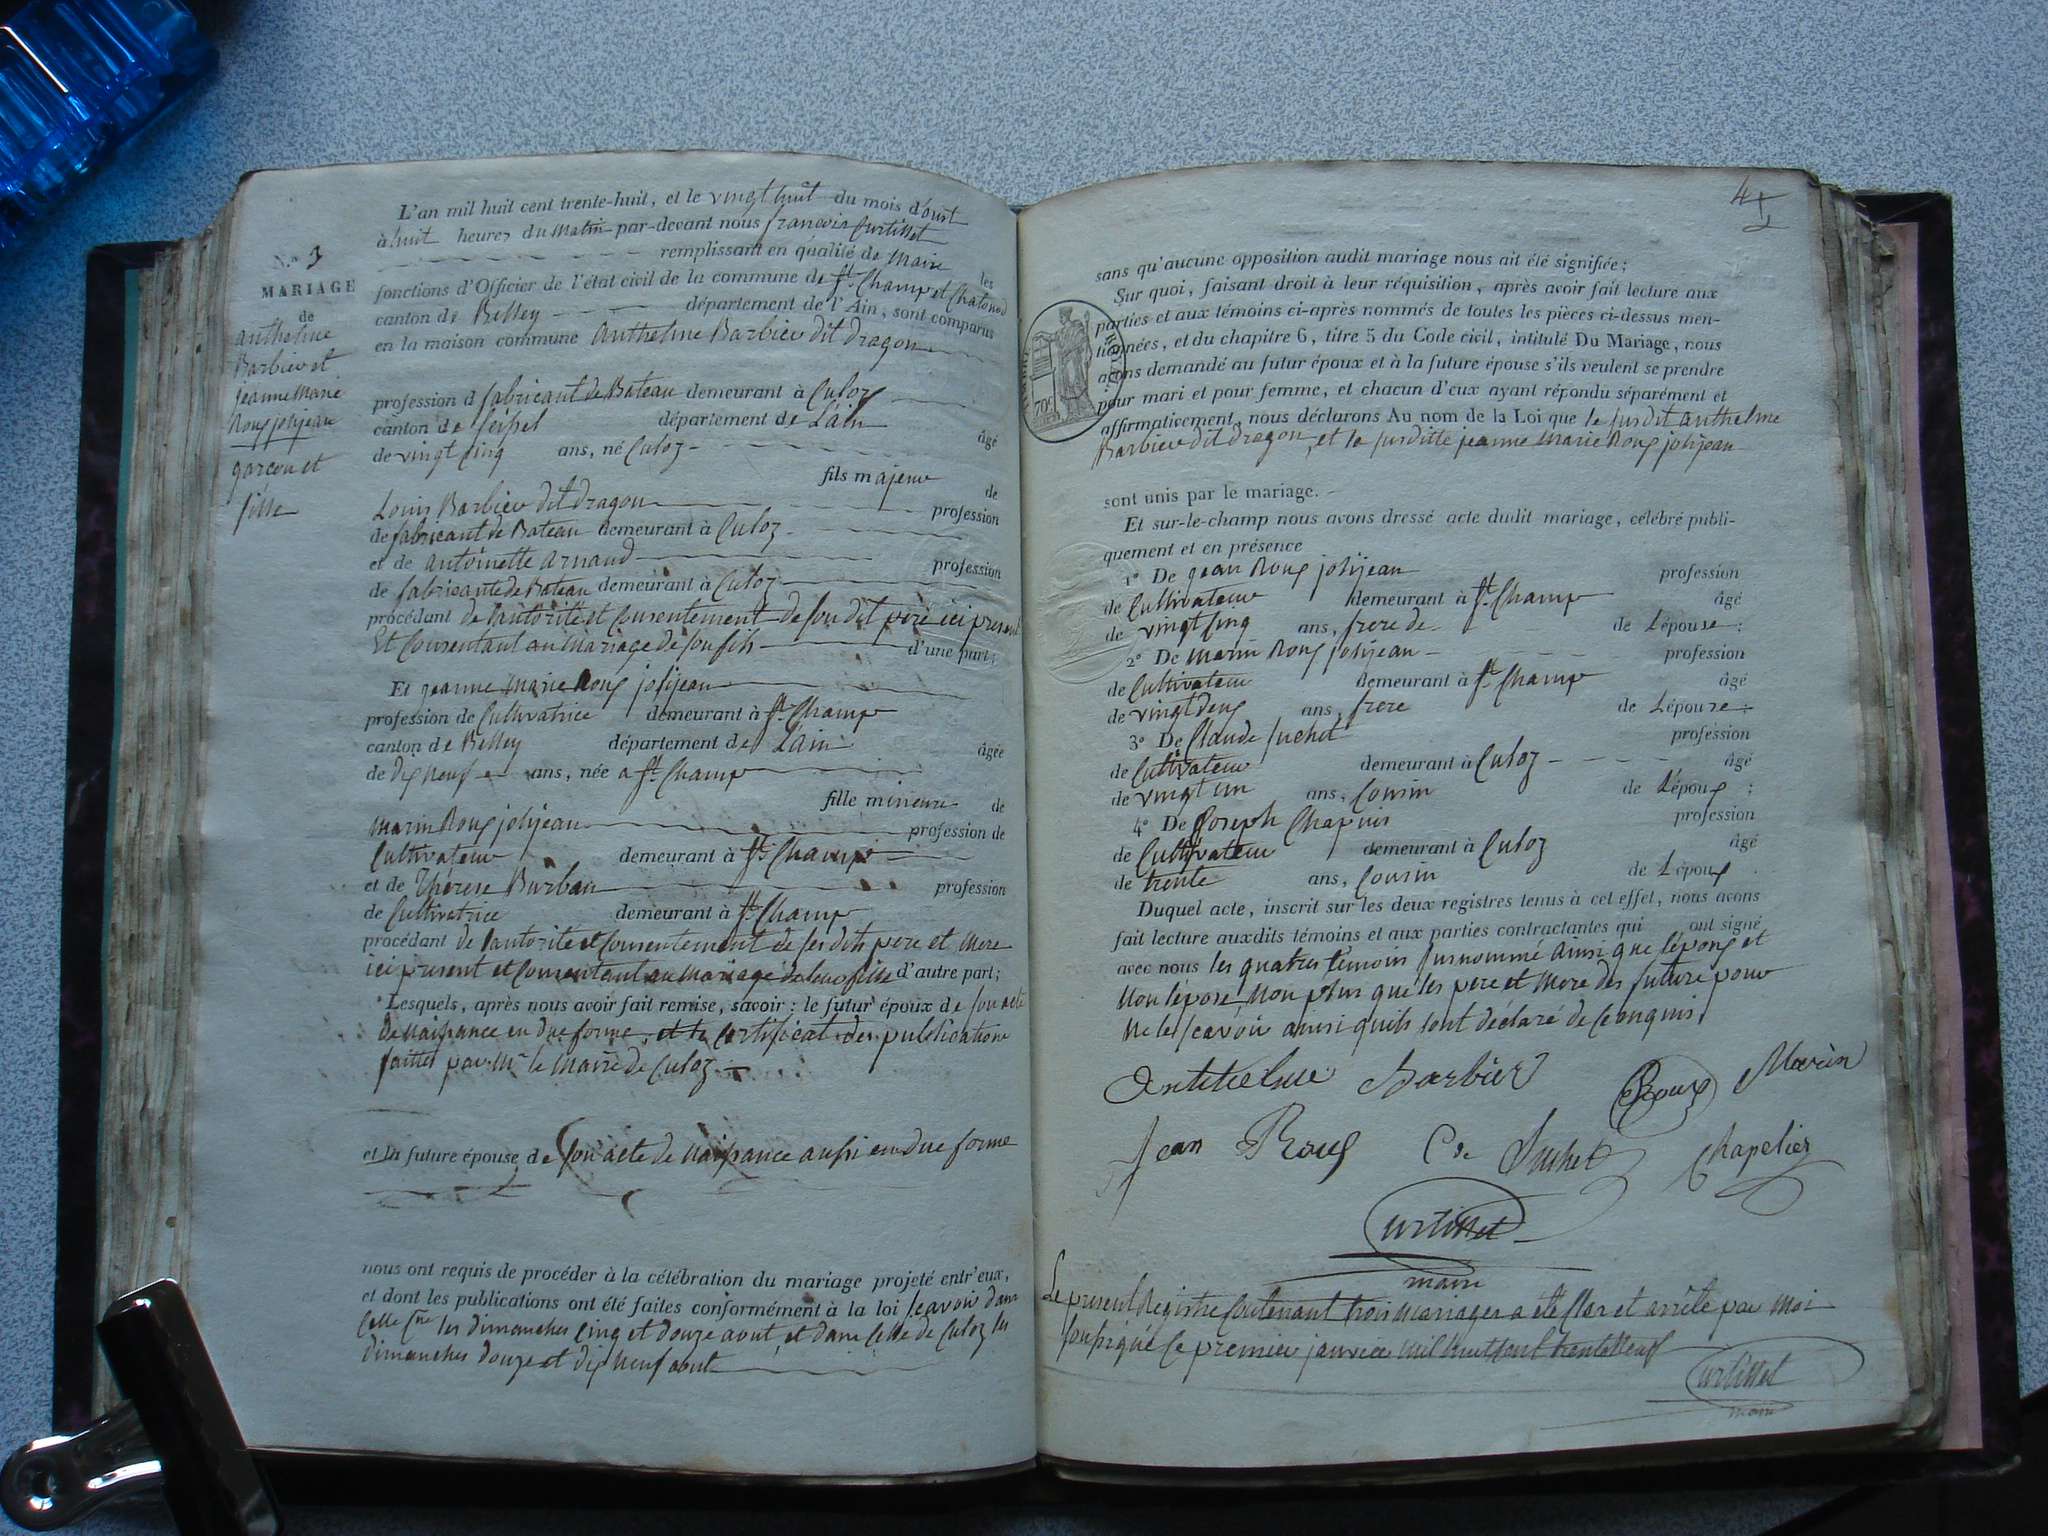 N.o 3
MARIAGE
de
anthelme
Barbier et
jeanne Marie
Roux jolijean
garcon et
fille
L'an mil huit cent trente-huit, et le vingt huit du mois d'oust
à huit heures du matin par-devant nous francois Curtillet
remplissant en qualité de Maire les
fonctions d'Officier de l'état civil de la commune de St. Champ et Chatonod
canton de Belley département de l'Ain, sont comparus
en la maison commune Anthelme Barbier dit dragon
profession d fabricant de Bateau demeurant à Culoz
canton de Seissel département de L'ain
âgé
de vingt cinq ans, né Culoz
fils majeur de
Louis Barbier dit dragon profession
de fabricant de Bateau demeurant à Culoz
et de antoinette arnaud profession
de fabricante de Bateau demeurant à Culoz
procédant de l'autorité et Consentement de son dit père ici present
Et Consentant au Mariage de son fils d'une part;
Et jeanne marie Roux jolijean
profession de Cultivatrice demeurant à St. Champ
canton de Belley département de L'ain âgée
de dix neuf ans, née a St. Champ
fille mineure de
Marin Roux jolijean profession de
Cultivateur demeurant à St. Champ
et de Thérese Burban profession
de Cultivatrice demeurant à St. Champ
procédant de l'autorité et Consentement de ses dits pere et Mere
ici present et Consentant au Mariage de leur fille d'autre part;
Lesquels, après nous avoir fait remise, savoir: le futur époux de son acte
de Naissance en due forme, et le certificat des publications
faittes par Mr le Maire de Culoz
et la future épouse de son acte de naissance aussi en due forme
nous ont requis de procéder à la célébration du mariage projeté entr'eux,
et dont les publications ont été faites conformément à la loi scavoir dans
Celle Cne les dimanches Cinq et douze aout, et dans Celle de Culoz les
dimanches douze et dix neuf aout
4
sans qu'aucune opposition audit mariage nous ait été signifiée;
Sur quoi, faisant droit à leur réquisition, après avoir fait lecture aux
parties et aux témoins ci-après nommés de toutes les pièces ci-dessus men-
tionnées, et du chapitre 6, titre 5 du Code civil, intitulé Du Mariage, nous
avons demandé au futur époux et à la future épouse s'ils veulent se prendre
pour mari et pour femme, et chacun d'eux ayant répondu séparément et
affirmativement, nous déclarons Au nom de la Loi que le susdit anthelme
Barbier dit dragon, et la susditte jeanne Marie Roux jolijean
sont unis par le mariage.
Et sur-le-champ nous avons dressé acte dudit mariage, célébré publi-
quement et en présence
1° De jean Roux jolijean profession
de Cultivateur demeurant à St. Champ âgé
de vingt cinq ans, frere de de L'épouse;
2° De Marin Roux jolijean profession
de Cultivateur demeurant à St. Champ âgé
de vingt deux ans, frere de L'épouse;
3° De Claude Suchet profession
de Cultivateur demeurant à Culoz âgé
de vingt un ans, Cousin de L'époux;
4° De Joseph Chapuis profession
de Cultivateur demeurant à Culoz âgé
de trente ans, Cousin de L'époux
Duquel acte, inscrit sur les deux registres tenus à cet effet, nous avons
fait lecture auxdits témoins et aux parties contractantes qui ont signé
avec nous les quatres témoins surnommé ainsi que l'époux et
Non l'épose, Non plus que les pere et Mere des future pour
Ne les scavoir ainsi quils sont déclaré de Ce enquis
Antthelme Barbier Roux Marin
Jean Roux Cde Suchet Chapelier
Curtillet
maire
Le present Registre Contenant trois mariages a été Clos et arrêté par Moi
soussigné Ce premier janvier mil huit Cent trente Neuf
Curtillet
maire